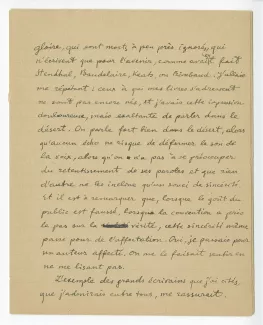 gloire, qui sont morts à peu près ignorés, qui
n'écrivent que pour l'avenir, comme avait fait
Stendhal, Baudelaire, Keats, ou Rimbaud. J'allais
me répétant : ceux à qui mes livres s'adressent
ne sont pas encore nés, et j'avais cette impression
douloureuse, mais exaltante de parler dans le
désert. On parle fort bien dans le désert, alors
qu'aucun écho ne risque de déformer le son de
la voix, alors qu'on n'a pas à se préoccuper
du retentissement de ses paroles et que rien
d'autre ne les incline qu'un souci de sincérité.
Et il est à remarquer que, lorsque le goût du
public est faussé, lorsque la convention a pris
le pas sur la vérité, cette sincérité même
passe pour de l'affectation. Oui, je passais pour
un auteur affecté. On me le faisait sentir en
ne me lisant pas.
L'exemple des grands écrivains que j'ai cités,
que j'admirais entre tous, me rassurait.